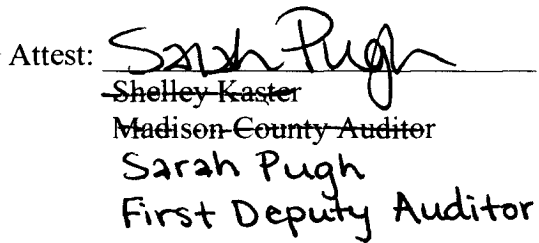 Attest: Sarah Pugh
Shelley Kaster
Madison County Auditor
Sarah Pugh
First Deputy Auditor